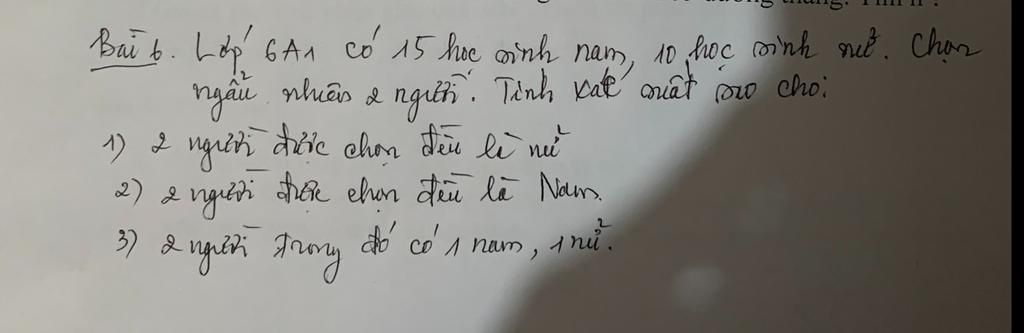 Bài 6. Lớp 6A1 có 15 học sinh nam, 10 học sinh nữ. Chọn
ngẫu nhiên 2 người. Tính xác suất sao cho:
1) 2 người được chọn đều là nữ
2) 2 người được chọn đều là Nam.
3) 2 người trong đó có 1 nam, 1 nữ.